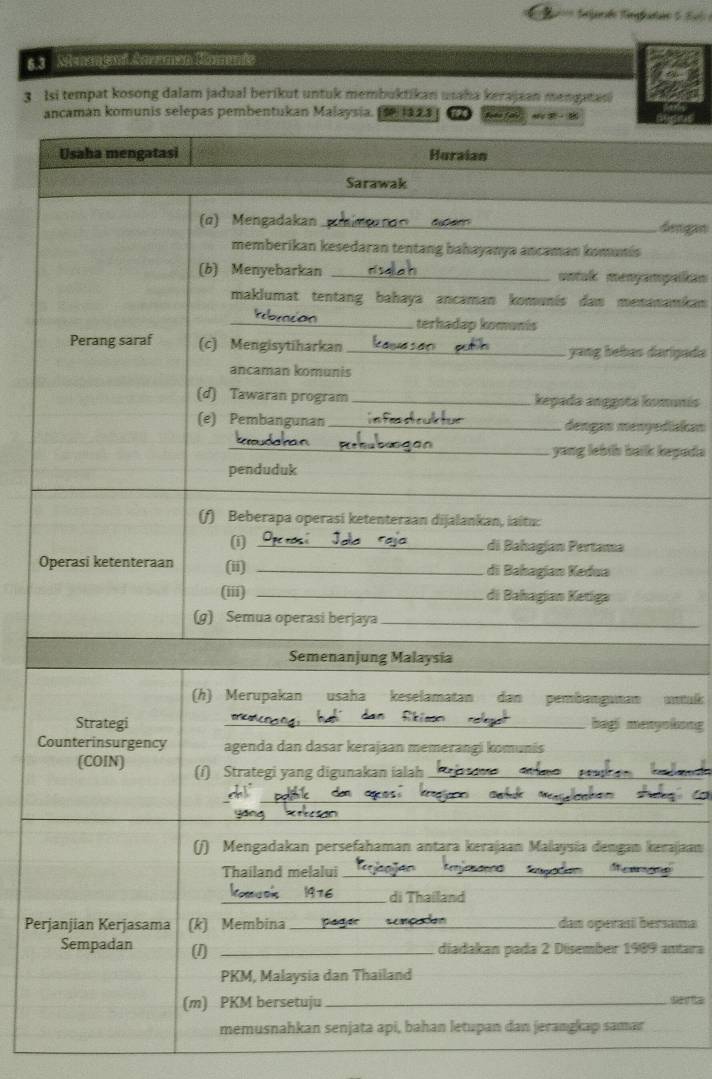 Sejarah Tingkatan 5
6.3 Menangani Ancaman Komunis
3 Isi tempat kosong dalam jadual berikut untuk membuktikan usaha kerajaan mengatasi
ancaman komunis selepas pembentukan Malaysia. SP: 13.2.3 TP4
Usaha mengatasi Huraian
Sarawak
(a) Mengadakan dengan
memberikan kesedaran tentang bahayanya ancaman komunis
(b) Menyebarkan risalah untuk menyampaikan
maklumat tentang bahaya ancaman komunis dan menanamkan
kebencian terhadap komunis
Perang saraf (c) Mengisytiharkan kawasan putih yang bebas daripada
ancaman komunis
(d) Tawaran program kepada anggota komunis
(e) Pembangunan infrastruktur dengan menyediakan
kemudahan perhubungan yang lebih baik kepada
penduduk
(f) Beberapa operasi ketenteraan dijalankan, iaitu:
(i) Operasi Jala raja di Bahagian Pertama
Operasi ketenteraan (ii) di Bahagian Kedua
(iii) di Bahagian Ketiga
(g) Semua operasi berjaya
Semenanjung Malaysia
(h) Merupakan usaha keselamatan dan pembangunan untuk
Strategi memenangi hati dan fikiran rakyat bagi menyokong
Counterinsurgency agenda dan dasar kerajaan memerangi komunis
(COIN)
(i) Strategi yang digunakan ialah kerjasama antara
ahli politik dan agensi kerajaan untuk menjalankan strategi
yang berkesan
(j) Mengadakan persefahaman antara kerajaan Malaysia dengan kerajaan
Thailand melalui Perjanjian kerjasama sempadan
komunis 1976 di Thailand
Perjanjian Kerjasama (k) Membina pagar sempadan dan operasi bersama
Sempadan (l) diadakan pada 2 Disember 1989 antara
PKM, Malaysia dan Thailand
(m) PKM bersetuju serta
memusnahkan senjata api, bahan letupan dan jerangkap samar